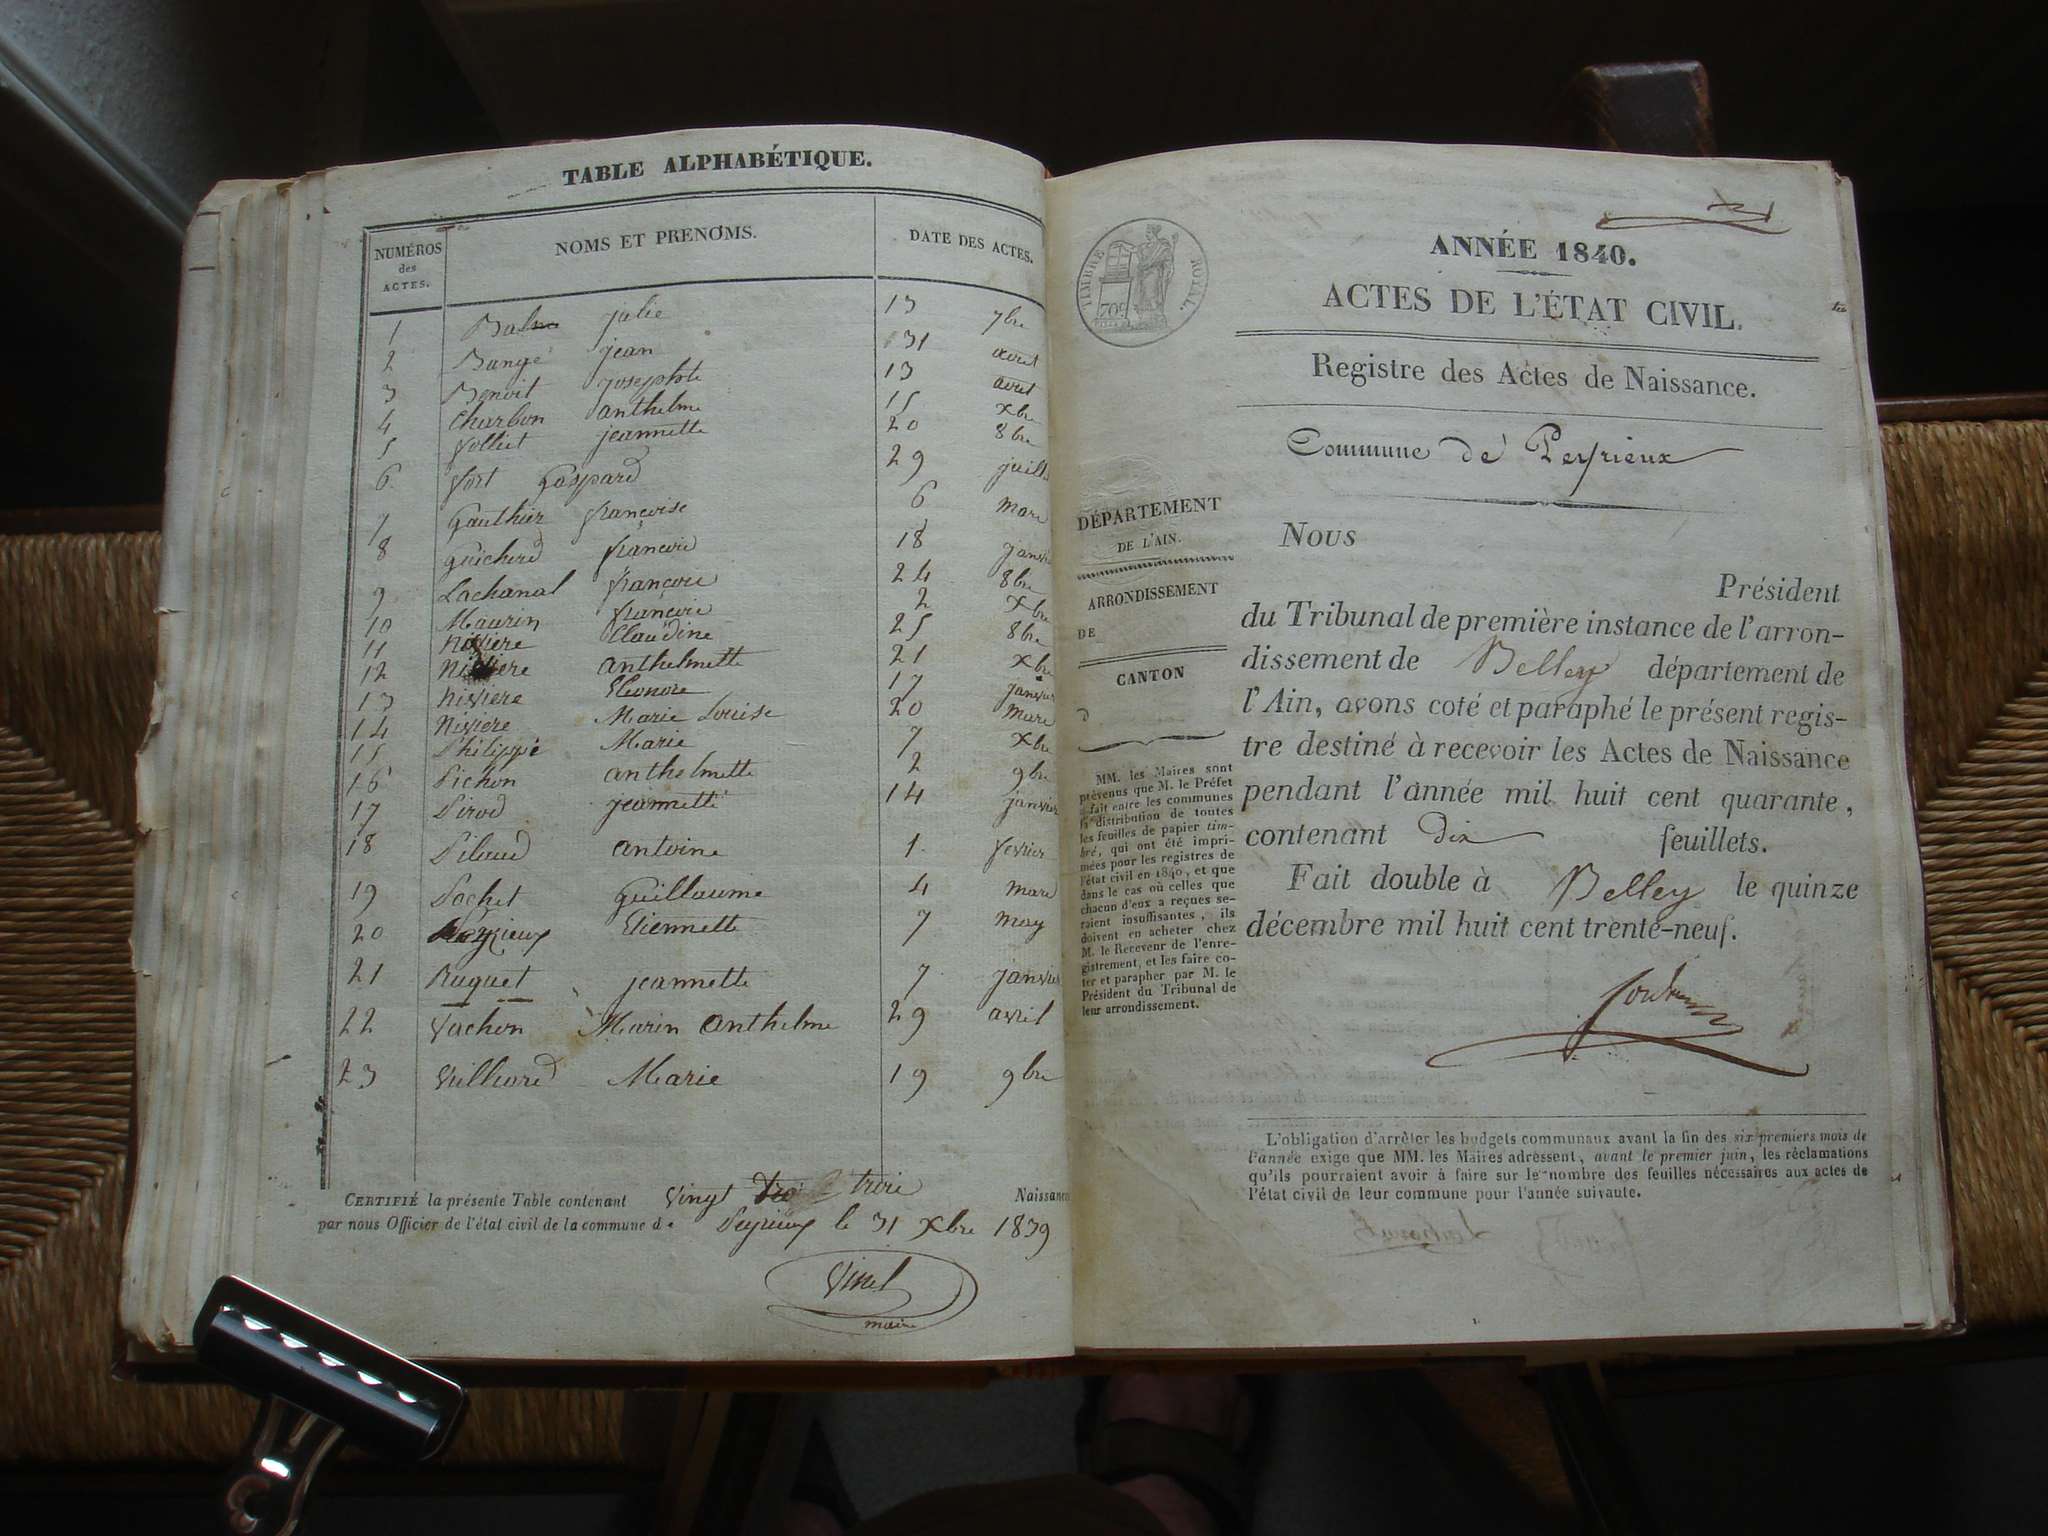 TABLE ALPHABÉTIQUE.
NUMÉROS des ACTES.
NOMS ET PRENOMS.
DATE DES ACTES.
1 julie 13 7bre
2 Bangé jean 31 avril
3 Benoit josephte 13 avril
4 Charbon anthelme 15 xbre
5 folliet jeannette 20 8bre
6 fort Gaspard 29 juill
7 Gauthier françoise 6 mars
8 Guicherd françois 18 janvier
9 Lachanal françois 24 8bre
10 Maurin françois 2 xbre
11 Niviere Claudine 25 8bre
12 Niviere anthelmette 21 xbre
13 Niviere Eleonore 17 janvier
14 Niviere Marie Louise 20 mars
15 Philippe Marie 7 xbre
16 Pichon anthelmette 2 9bre
17 Pirod jeannette 14 janvier
18 antoine 1 fevrier
19 Pochet Guillaume 4 mars
20 Peyrieux Etiennette 7 may
21 Ruquet jeannette 7 janvier
22 Vachon Marin anthelme 29 avril
23 Marie 19 9bre
CERTIFIÉ la présente Table contenant vingt trois Naissances
par nous Officier de l'état civil de la commune de Peyrieux le 31 xbre 1839
maire
TIMBRE ROYAL.
ANNÉE 1840.
ACTES DE L'ÉTAT CIVIL.
Registre des Actes de Naissance.
Commune de Peyrieux
DÉPARTEMENT
DE L'AIN.
ARRONDISSEMENT
DE
CANTON
D
MM. les Maires sont
prévenus que M. le Préfet
a fait entre les communes
la distribution de toutes
les feuilles de papier tim-
bré, qui ont été impri-
mées pour les registres de
l'état civil en 1840, et que
dans le cas où celles que
chacun d'eux a reçues se-
raient insuffisantes, ils
doivent en acheter chez
M. le Receveur de l'enre-
gistrement, et les faire co-
ter et parapher par M. le
Président du Tribunal de
leur arrondissement.
Nous
Président
du Tribunal de première instance de l'arron-
dissement de Belley département de
l'Ain, avons coté et paraphé le présent regis-
tre destiné à recevoir les Actes de Naissance
pendant l'année mil huit cent quarante,
contenant dix feuillets.
Fait double à Belley le quinze
décembre mil huit cent trente-neuf.
L'obligation d'arrêter les budgets communaux avant la fin des six premiers mois de
l'année exige que MM. les Maires adressent, avant le premier juin, les réclamations
qu'ils pourraient avoir à faire sur le nombre des feuilles nécessaires aux actes de
l'état civil de leur commune pour l'année suivante.